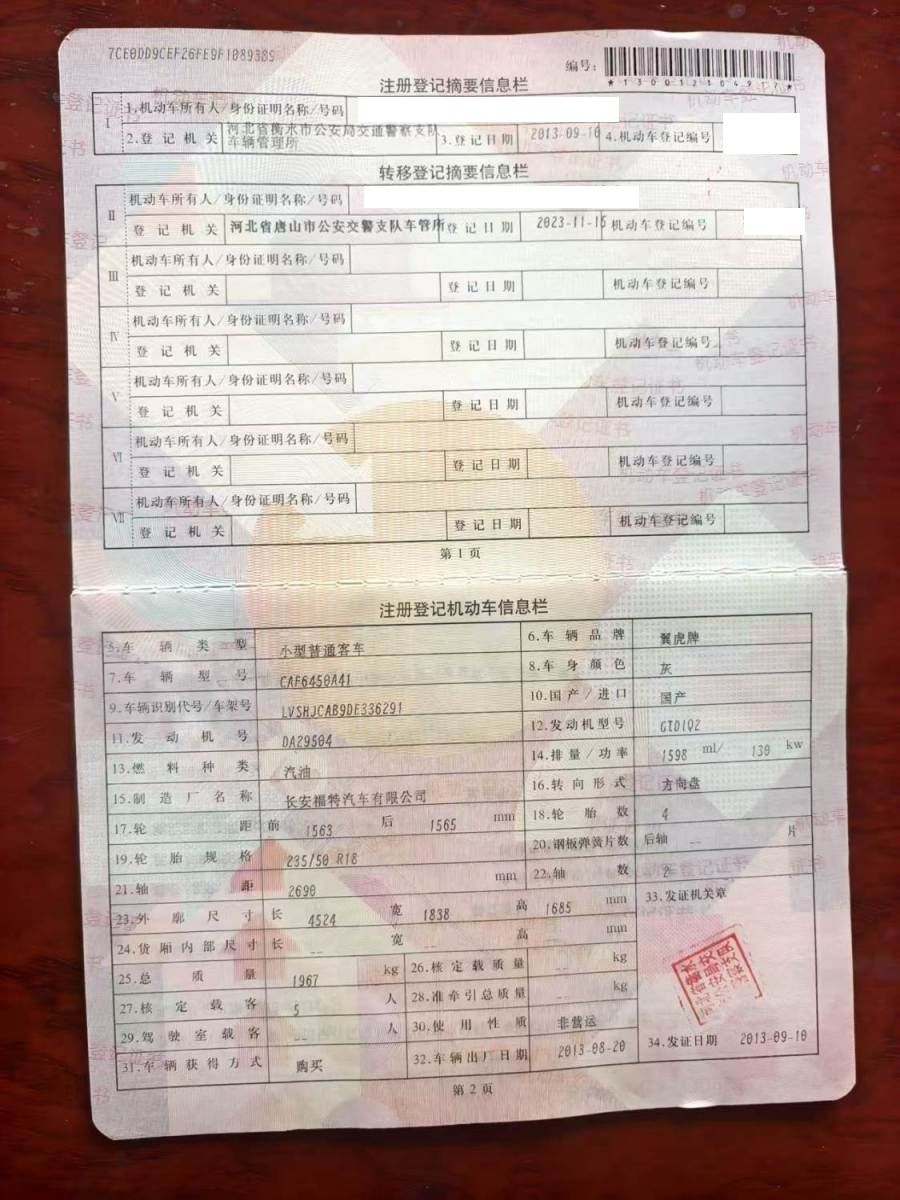 7CE0DD9CEF26FE9F1089389
编号:
注册登记摘要信息栏
I 1.机动车所有人/身份证明名称/号码
2.登记机关 河北省衡水市公安局交通警察支队车辆管理所 3.登记日期 2013-09-10 4.机动车登记编号
转移登记摘要信息栏
II 机动车所有人/身份证明名称/号码
登记机关 河北省唐山市公安交警支队车管所 登记日期 2023-11-15 机动车登记编号
III 机动车所有人/身份证明名称/号码
登记机关 登记日期 机动车登记编号
IV 机动车所有人/身份证明名称/号码
登记机关 登记日期 机动车登记编号
V 机动车所有人/身份证明名称/号码
登记机关 登记日期 机动车登记编号
VI 机动车所有人/身份证明名称/号码
登记机关 登记日期 机动车登记编号
VII 机动车所有人/身份证明名称/号码
登记机关 登记日期 机动车登记编号
第1页
注册登记机动车信息栏
5.车辆类型 小型普通客车 6.车辆品牌 翼虎牌
7.车辆型号 CAF6450A41 8.车身颜色 灰
9.车辆识别代号/车架号 LVSHJCAB9DE336291 10.国产/进口 国产
11.发动机号 DA29504 12.发动机型号 GTDIQ2
13.燃料种类 汽油 14.排量/功率 1598 ml/ 130 kw
15.制造厂名称 长安福特汽车有限公司 16.转向形式 方向盘
17.轮距 前 1563 后 1565 mm 18.轮胎数 4
19.轮胎规格 235/50 R18 20.钢板弹簧片数 后轴 -- 片
21.轴距 2690 mm 22.轴数 2
23.外廓尺寸 长 4524 宽 1838 高 1685 mm 33.发证机关章
24.货厢内部尺寸 长 -- 宽 -- 高 -- mm
25.总质量 1967 kg 26.核定载质量 -- kg
27.核定载客 5 人 28.准牵引总质量 -- kg
29.驾驶室载客 -- 人 30.使用性质 非营运
31.车辆获得方式 购买 32.车辆出厂日期 2013-08-20 34.发证日期 2013-09-10
第2页